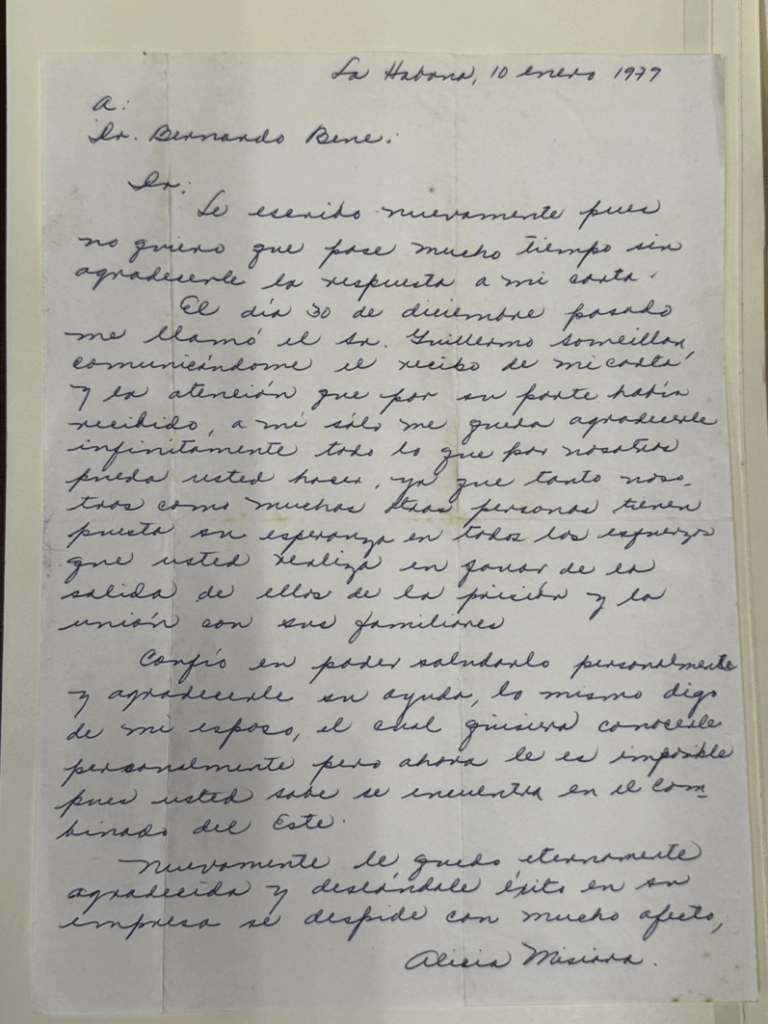 La Habana, 10 enero 1979
A:
Dr. Bernardo Bene.
Dr.:
Le escribo nuevamente pues
no quiero que pase mucho tiempo sin
agradecerle la respuesta a mi carta.
El día 30 de diciembre pasado
me llamó el Sr. Guillermo Someillan,
comunicándome el recibo de mi carta
y la atención que por su parte había
recibido, a mi sólo me queda agradecerle
infinitamente todo lo que por nosotros
pueda usted hacer, ya que tanto noso-
tros como muchas otras personas tienen
puesta su esperanza en todos los esfuerzos
que usted realiza en favor de la
salida de ellos de la prisión y la
unión con sus familiares
Confío en poder saludarlo personalmente
y agradecerle su ayuda, lo mismo digo
de mi esposo, el cual quisiera conocerle
personalmente pero ahora le es imposible
pues usted sabe se encuentra en el Com-
binado del Este.
Nuevamente le quedo eternamente
agradecida y deseándole éxito en su
empresa se despide con mucho afecto,
Alicia Misiara.